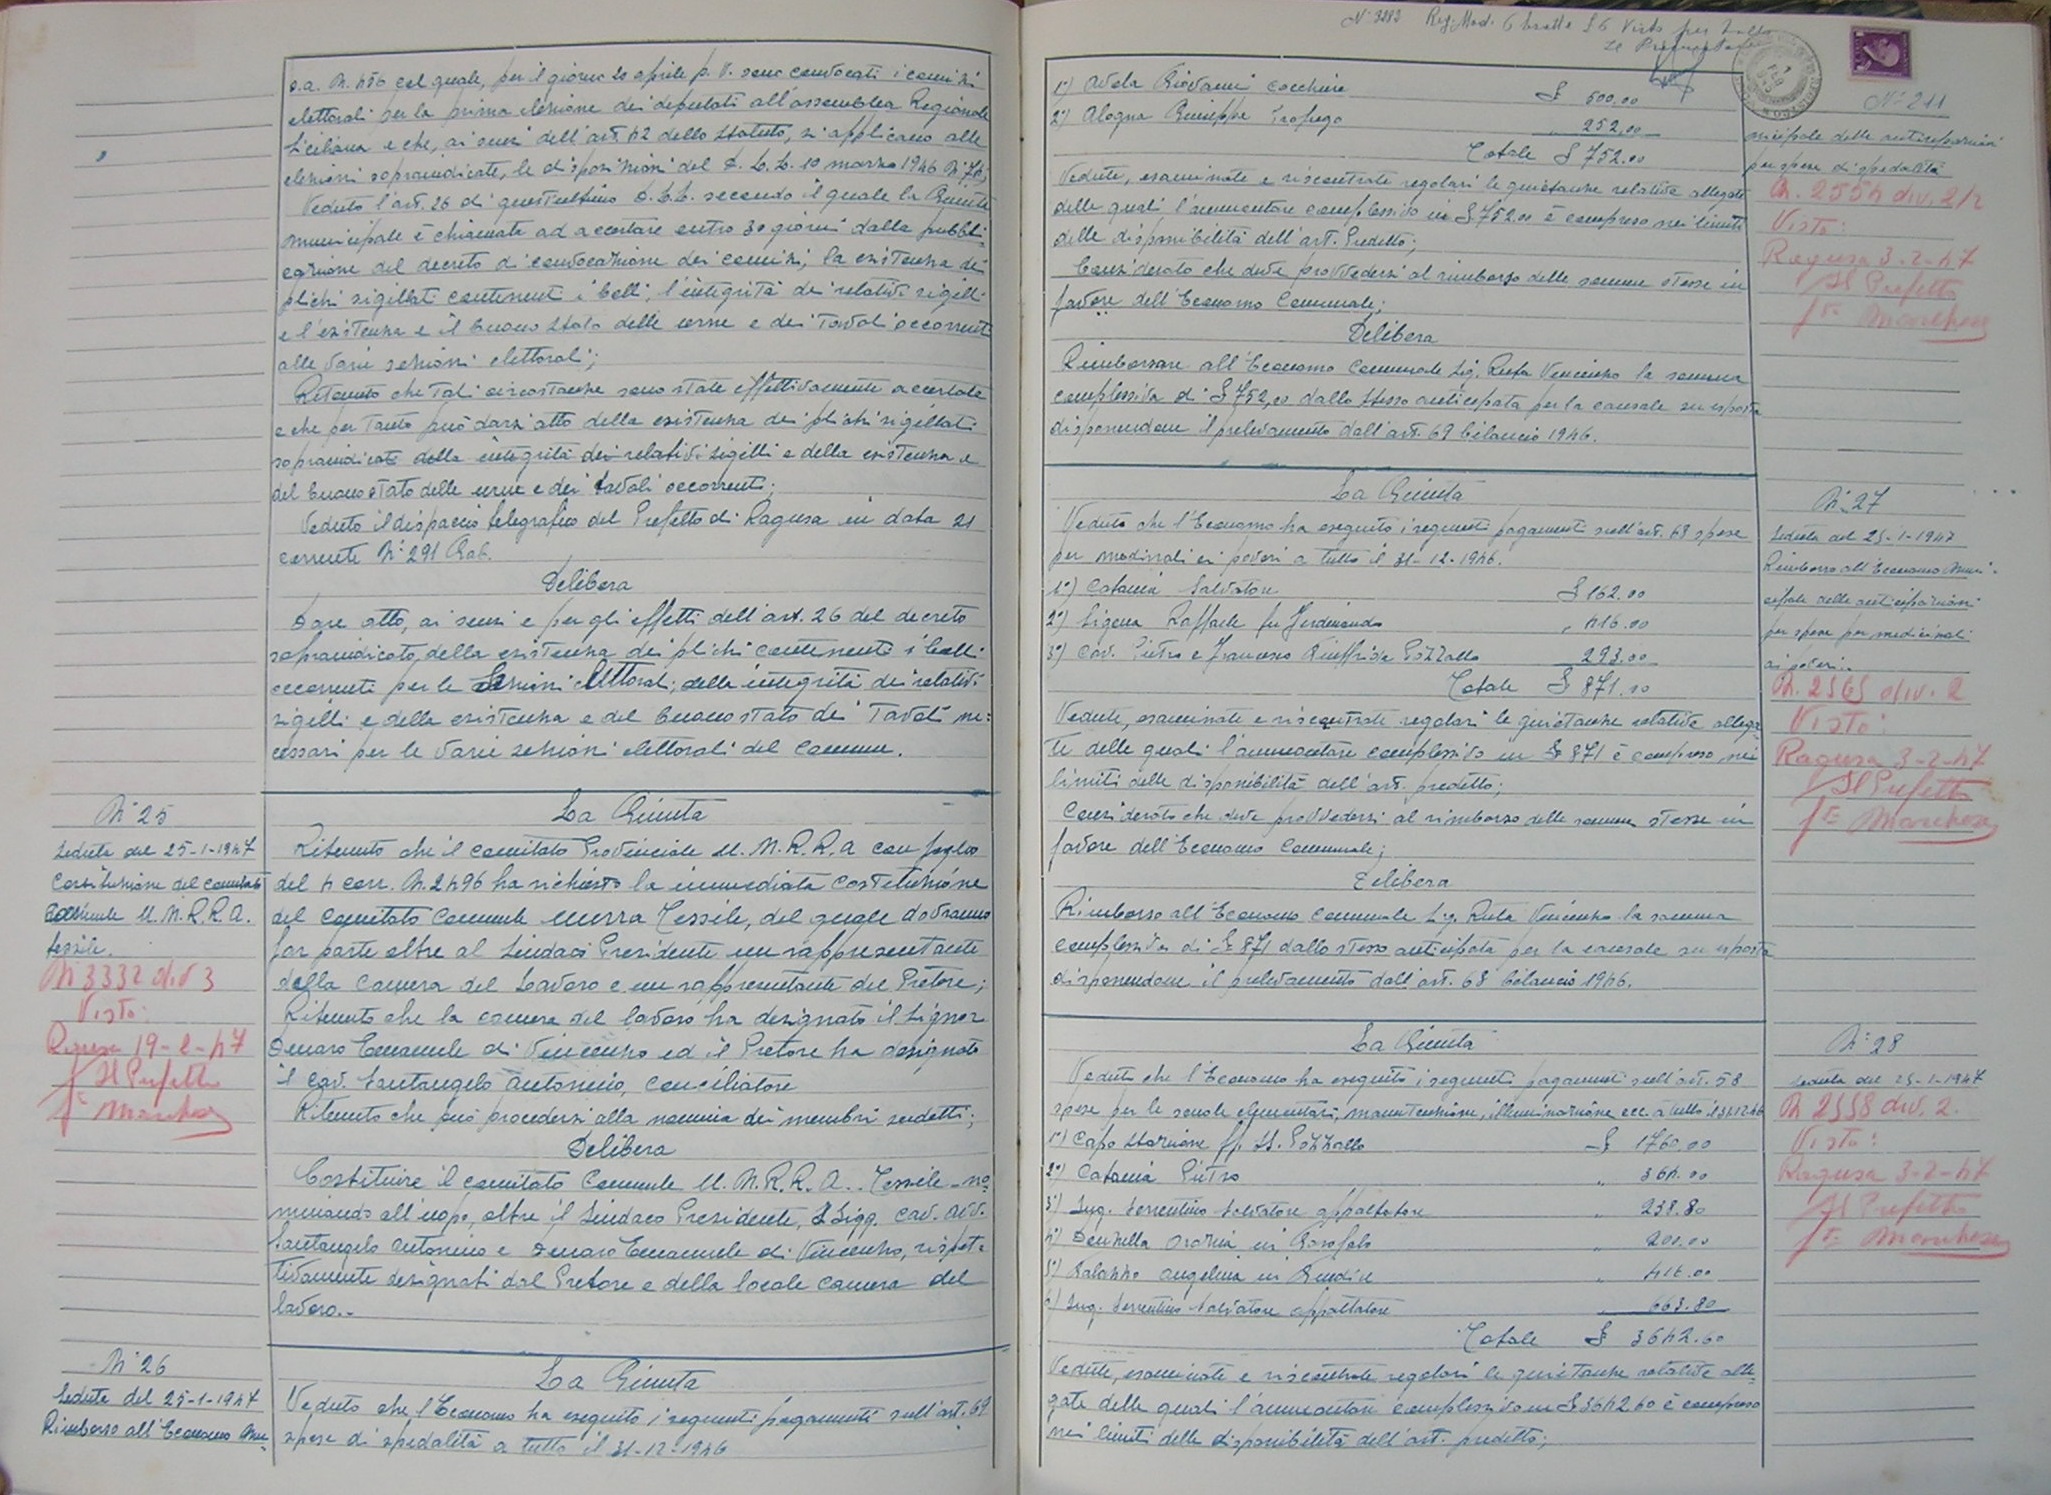 s.a. N. 456 col quale, per il giorno 20 aprile p. v. sono convocati i comizi
elettorali per la prima elezione dei deputati all'assemblea Regionale
Siciliana e che, ai sensi dell'art. 42 dello Statuto, si applicano alle
elezioni sopraindicate, le disposizioni del D. L. L. 10 marzo 1946 N. 74;
Veduto l'art. 26 di quest'ultimo D. L. L. secondo il quale la Giunta
municipale è chiamata ad accertare entro 30 giorni dalla pubbli-
cazione del decreto di convocazione dei comizi, la esistenza dei
plichi sigillati contenenti i bolli, l'integrità dei relativi sigilli
e l'esistenza e il buono stato delle urne e dei tavoli occorrenti
alle varie sezioni elettorali;
Ritenuto che tali circostanze sono state effettivamente accertate
e che per tanto può darsi atto della esistenza dei plichi sigillati
sopraindicati della integrità dei relativi sigilli e della esistenza e
del buono stato delle urne e dei tavoli occorrenti;
Veduto il dispaccio telegrafico del Prefetto di Ragusa in data 21
corrente N° 291 Gab.
Delibera
Dare atto, ai sensi e per gli effetti dell'art. 26 del decreto
sopraindicato della esistenza dei plichi contenenti i bolli
occorrenti per le Sezioni elettorali; della integrità dei relativi
sigilli e della esistenza e del buono stato dei tavoli ne=
cessari per le varie sezioni elettorali del Comune.
N° 25
Seduta del 25-1-1947
Costituzione del comitato
comunale U. N. R. R. A.
tessile.
N 3332 div 3
Visto:
Ragusa 19-2-47
Il Prefetto
f° Marchese
La Giunta
Ritenuto che il comitato Provinciale U. N. R. R. A con foglio
del 4 corr. N. 2496 ha richiesto la immediata costituzione
del comitato Comunale unrra Tessile, del quale dovranno
far parte oltre al Sindaco Presidente un rappresentante
della Camera del Lavoro e un rappresentante del Pretore;
Ritenuto che la camera del lavoro ha designato il Signor
Denaro Emanuele di Vincenzo ed il Pretore ha designato
il cav. Santangelo Antonino, conciliatore
Ritenuto che può procedersi alla nomina dei membri suddetti;
Delibera
Costituire il comitato Comunale U. N. R. R. A. Tessile - no=
minando all'uopo, oltre il Sindaco Presidente, I Sigg. cav. avv.
Santangelo Antonino e Denaro Emanuele di Vincenzo, rispet=
tivamente designati dal Pretore e della locale camera del
lavoro.-
N° 26
Seduta del 25-1-1947
Rimborso all'Economo Mu=
La Giunta
Veduto che l'Economo ha eseguito i seguenti pagamenti sull'art. 69
spese di spedalità a tutto il 31-12-1946
N° 3282 Reg. Mod.
Il Procuratore
N° 211
1°) Avola Giovanni cocchiere £ 500,00
2°) Alogna Giuseppe " 252,00
Totale £ 752.00
Vedute, esaminate e riscontrate regolari le quietanze relative allegate
delle quali l'ammontare complessivo in £ 752.00 è compreso nei limiti
delle disponibilità dell'art. Predetto;
Considerato che deve provvedersi al rimborso delle somme stesse in
favore dell'Economo Comunale;
Delibera
Rimborsare all'Economo Comunale Sig. Ruta Vincenzo la somma
complessiva di £ 752,00 dallo stesso anticipata per la causale su esposta
disponendone il prelevamento dall'art. 69 bilancio 1946.
nicipale delle anticipazioni
per spese di spedalità
N. 2554 div. 2/2
Visto:
Ragusa 3-2-47
Il Prefetto
f° Marchese
La Giunta
Veduto che l'Economo ha eseguito i seguenti pagamenti sull'art. 68 spese
per medicinali ai poveri a tutto il 31-12-1946.
1°) Catania Salvatore £ 162.00
2°) Sigona Raffaele fu Ferdinando " 416.00
3°) Cav. Pietro e Francesco Giuffrida Pozzallo 293.00
Totale £ 871.00
Vedute, esaminate e riscontrate regolari le quietanze relative allega=
te delle quali l'ammontare complessivo in £ 871 è compreso nei
limiti delle disponibilità dell'art. predetto;
Considerato che deve provvedersi al rimborso delle somme stesse in
favore dell'Economo Comunale;
Delibera
Rimborso all'Economo Comunale Sig. Ruta Vincenzo la somma
complessiva di £ 871 dallo stesso anticipata per la causale su esposta
disponendone il prelevamento dall'art. 68 bilancio 1946.
N. 27
Seduta del 25-1-1947
Rimborso all'Economo Muni-
cipale delle anticipazioni
per spese per medicinali
ai poveri.
N. 2565 div. 2
Visto:
Ragusa 3-2-47
Il Prefetto
f° Marchese
La Giunta
Veduto che l'Economo ha eseguito i seguenti pagamenti sull'art. 58
spese per le scuole elementari, manutenzione, illuminazione ecc. a tutto il 31.12.46
1°) Capo Stazione ff. SS. Pozzallo £ 1760.00
2°) Catania Pietro " 364.00
3°) Ing. Sorrentino Salvatore appaltatore " 238.80
4°) Denzella Orazia in " 200.00
5°) Galazzo Angelina in " 416.00
6°) Ing. Sorrentino Salvatore appaltatore " 663.80
Totale £ 3642.60
Vedute, esaminate e riscontrate regolari le quietanze relative alle=
gate delle quali l'ammontare complessivo in £ 3642.60 è compreso
nei limiti delle disponibilità dell'art. predetto;
N° 28
Seduta del 25-1-1947
N 2558 div. 2.
Visto:
Ragusa 3-2-47
Il Prefetto
f° Marchese